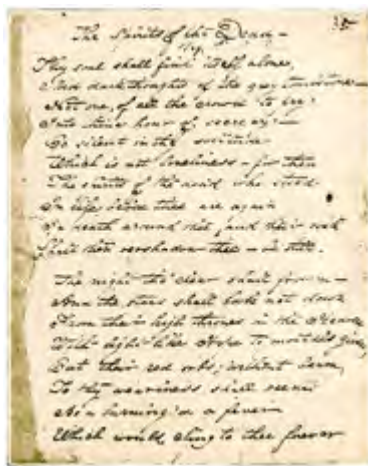 35
The Spirits of the Dead —
Thy soul shall find itself alone,
dark thoughts of the grey tombstone —
Not one, of all the crowd to pry
Into thine hour of secrecy: —
Be silent in the
Which is not loneliness — for then
The spirits of the dead who stood
In life before thee are again
In death around thee, and their will
Shall then overshadow thee — be still.
The night tho' clear shall frown —
And the stars shall look not down
From their high thrones in the Heaven
With light like Hope to mortals given,
But their red orbs, without beam,
To thy weariness shall seem
As a burning & a fever
Which would cling to thee forever